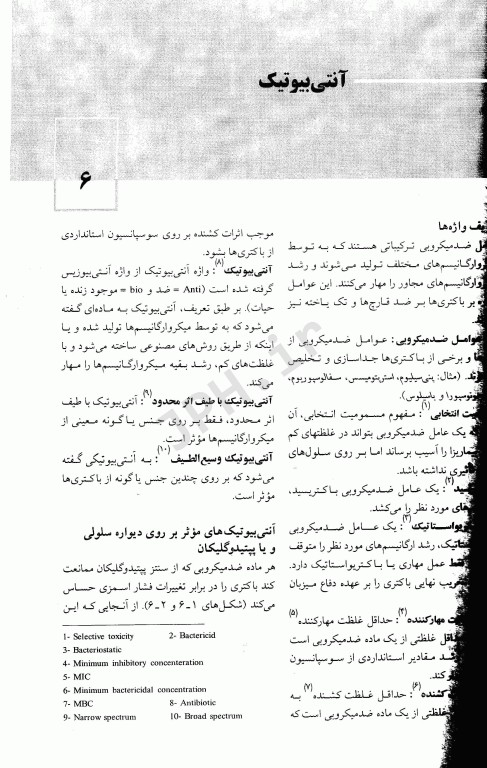 آنتی‌بیوتیک
۶
یف واژه‌ها
مل ضدمیکروبی ترکیباتی هستند که به توسط
وارگانیسم‌های مختلف تولید می‌شوند و رشد
وارگانیسم‌های مجاور را مهار می‌کنند. این عوامل
بر باکتری‌ها بر ضد قارچ‌ها و تک یاخته نیز
عوامل ضدمیکروبی: عوامل ضدمیکروبی از
ها و برخی از باکتری‌ها جداسازی و تخلیص
(مثال: پنی‌سیلیوم، استرپتومیسس، سفالوسپوریوم،
ونوسپورا و باسیلوس).
یت انتخابی(۱): مفهوم مسمومیت انتخابی، آن
که یک عامل ضدمیکروبی بتواند در غلظتهای کم
بیماریزا را آسیب برساند اما بر روی سلول‌های
تأثیری نداشته باشد.
سید(۲): یک عامل ضدمیکروبی باکتریسید،
های مورد نظر را می‌کشد.
ریواستاتیک(۳): یک عامل ضدمیکروبی
ستاتیک، رشد ارگانیسم‌های مورد نظر را متوقف
فقط عمل مهاری یا باکتریواستاتیک دارد.
ریب نهایی باکتری را بر عهده دفاع میزبان
ت مهارکننده(۴): حداقل غلظت مهارکننده(۵)
داقل غلظتی از یک ماده ضدمیکروبی است
شد مقادیر استانداردی از سوسپانسیون
کند.
کشنده(۶): حداقل غلظت کشنده(۷) به
غلظتی از یک ماده ضدمیکروبی است که
موجب اثرات کشنده بر روی سوسپانسیون استانداردی
از باکتری‌ها بشود.
آنتی‌بیوتیک(۸): واژه آنتی‌بیوتیک از واژه آنتی‌بیوزیس
گرفته شده است (Anti = ضد و bio = موجود زنده یا
حیات). بر طبق تعریف، آنتی‌بیوتیک به ماده‌ای گفته
می‌شود که به توسط میکروارگانیسم‌ها تولید شده و یا
اینکه از طریق روش‌های مصنوعی ساخته می‌شود و با
غلظت‌های کم، رشد بقیه میکروارگانیسم‌ها را مهار
می‌کند.
آنتی‌بیوتیک با طیف اثر محدود(۹): آنتی‌بیوتیک با طیف
اثر محدود، فقط بر روی جنس یا گونه معینی از
میکروارگانیسم‌ها مؤثر است.
آنتی‌بیوتیک وسیع‌الطیف(۱۰): به آنتی‌بیوتیکی گفته
می‌شود که بر روی چندین جنس یا گونه از باکتری‌ها
مؤثر است.
آنتی‌بیوتیک‌های مؤثر بر روی دیواره سلولی
و یا پپتیدوگلیکان
هر ماده ضدمیکروبی که از سنتز پپتیدوگلیکان ممانعت
کند باکتری را در برابر تغییرات فشار اسمزی حساس
می‌کند (شکل‌های ۱-۶ و ۲-۶). از آنجایی که این
1- Selective toxicity 2- Bactericid
3- Bacteriostatic
4- Minimum inhibitory concenteration
5- MIC
6- Minimum bactericidal concentration
7- MBC 8- Antibiotic
9- Narrow spectrum 10- Broad spectrum